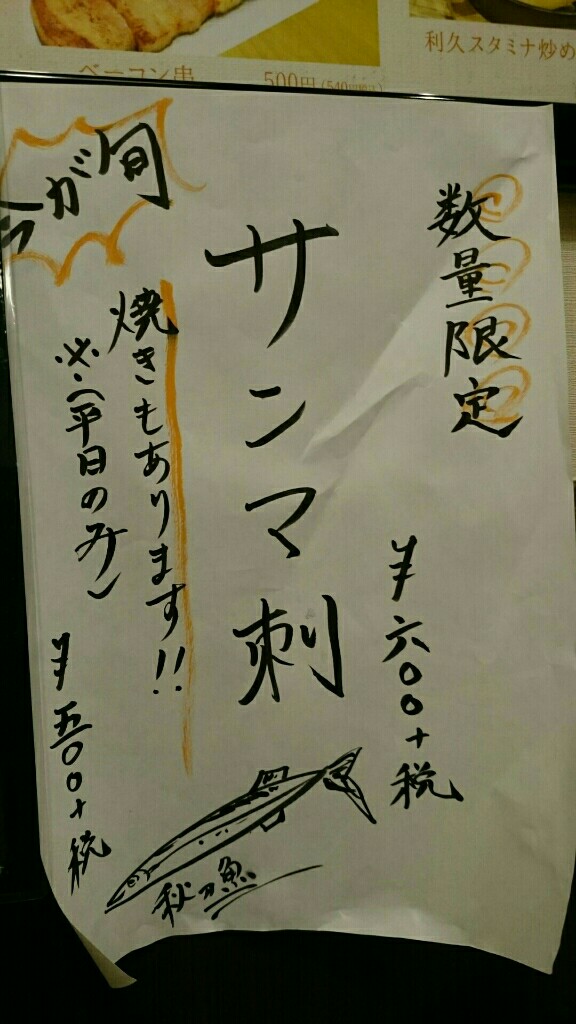 ベーコン串
500円(540円税込)
利久スタミナ炒め
数量限定
サンマ刺
¥六〇〇+税
今が旬
焼きもあります!!
※(平日のみ)
¥五〇〇+税
秋刀魚